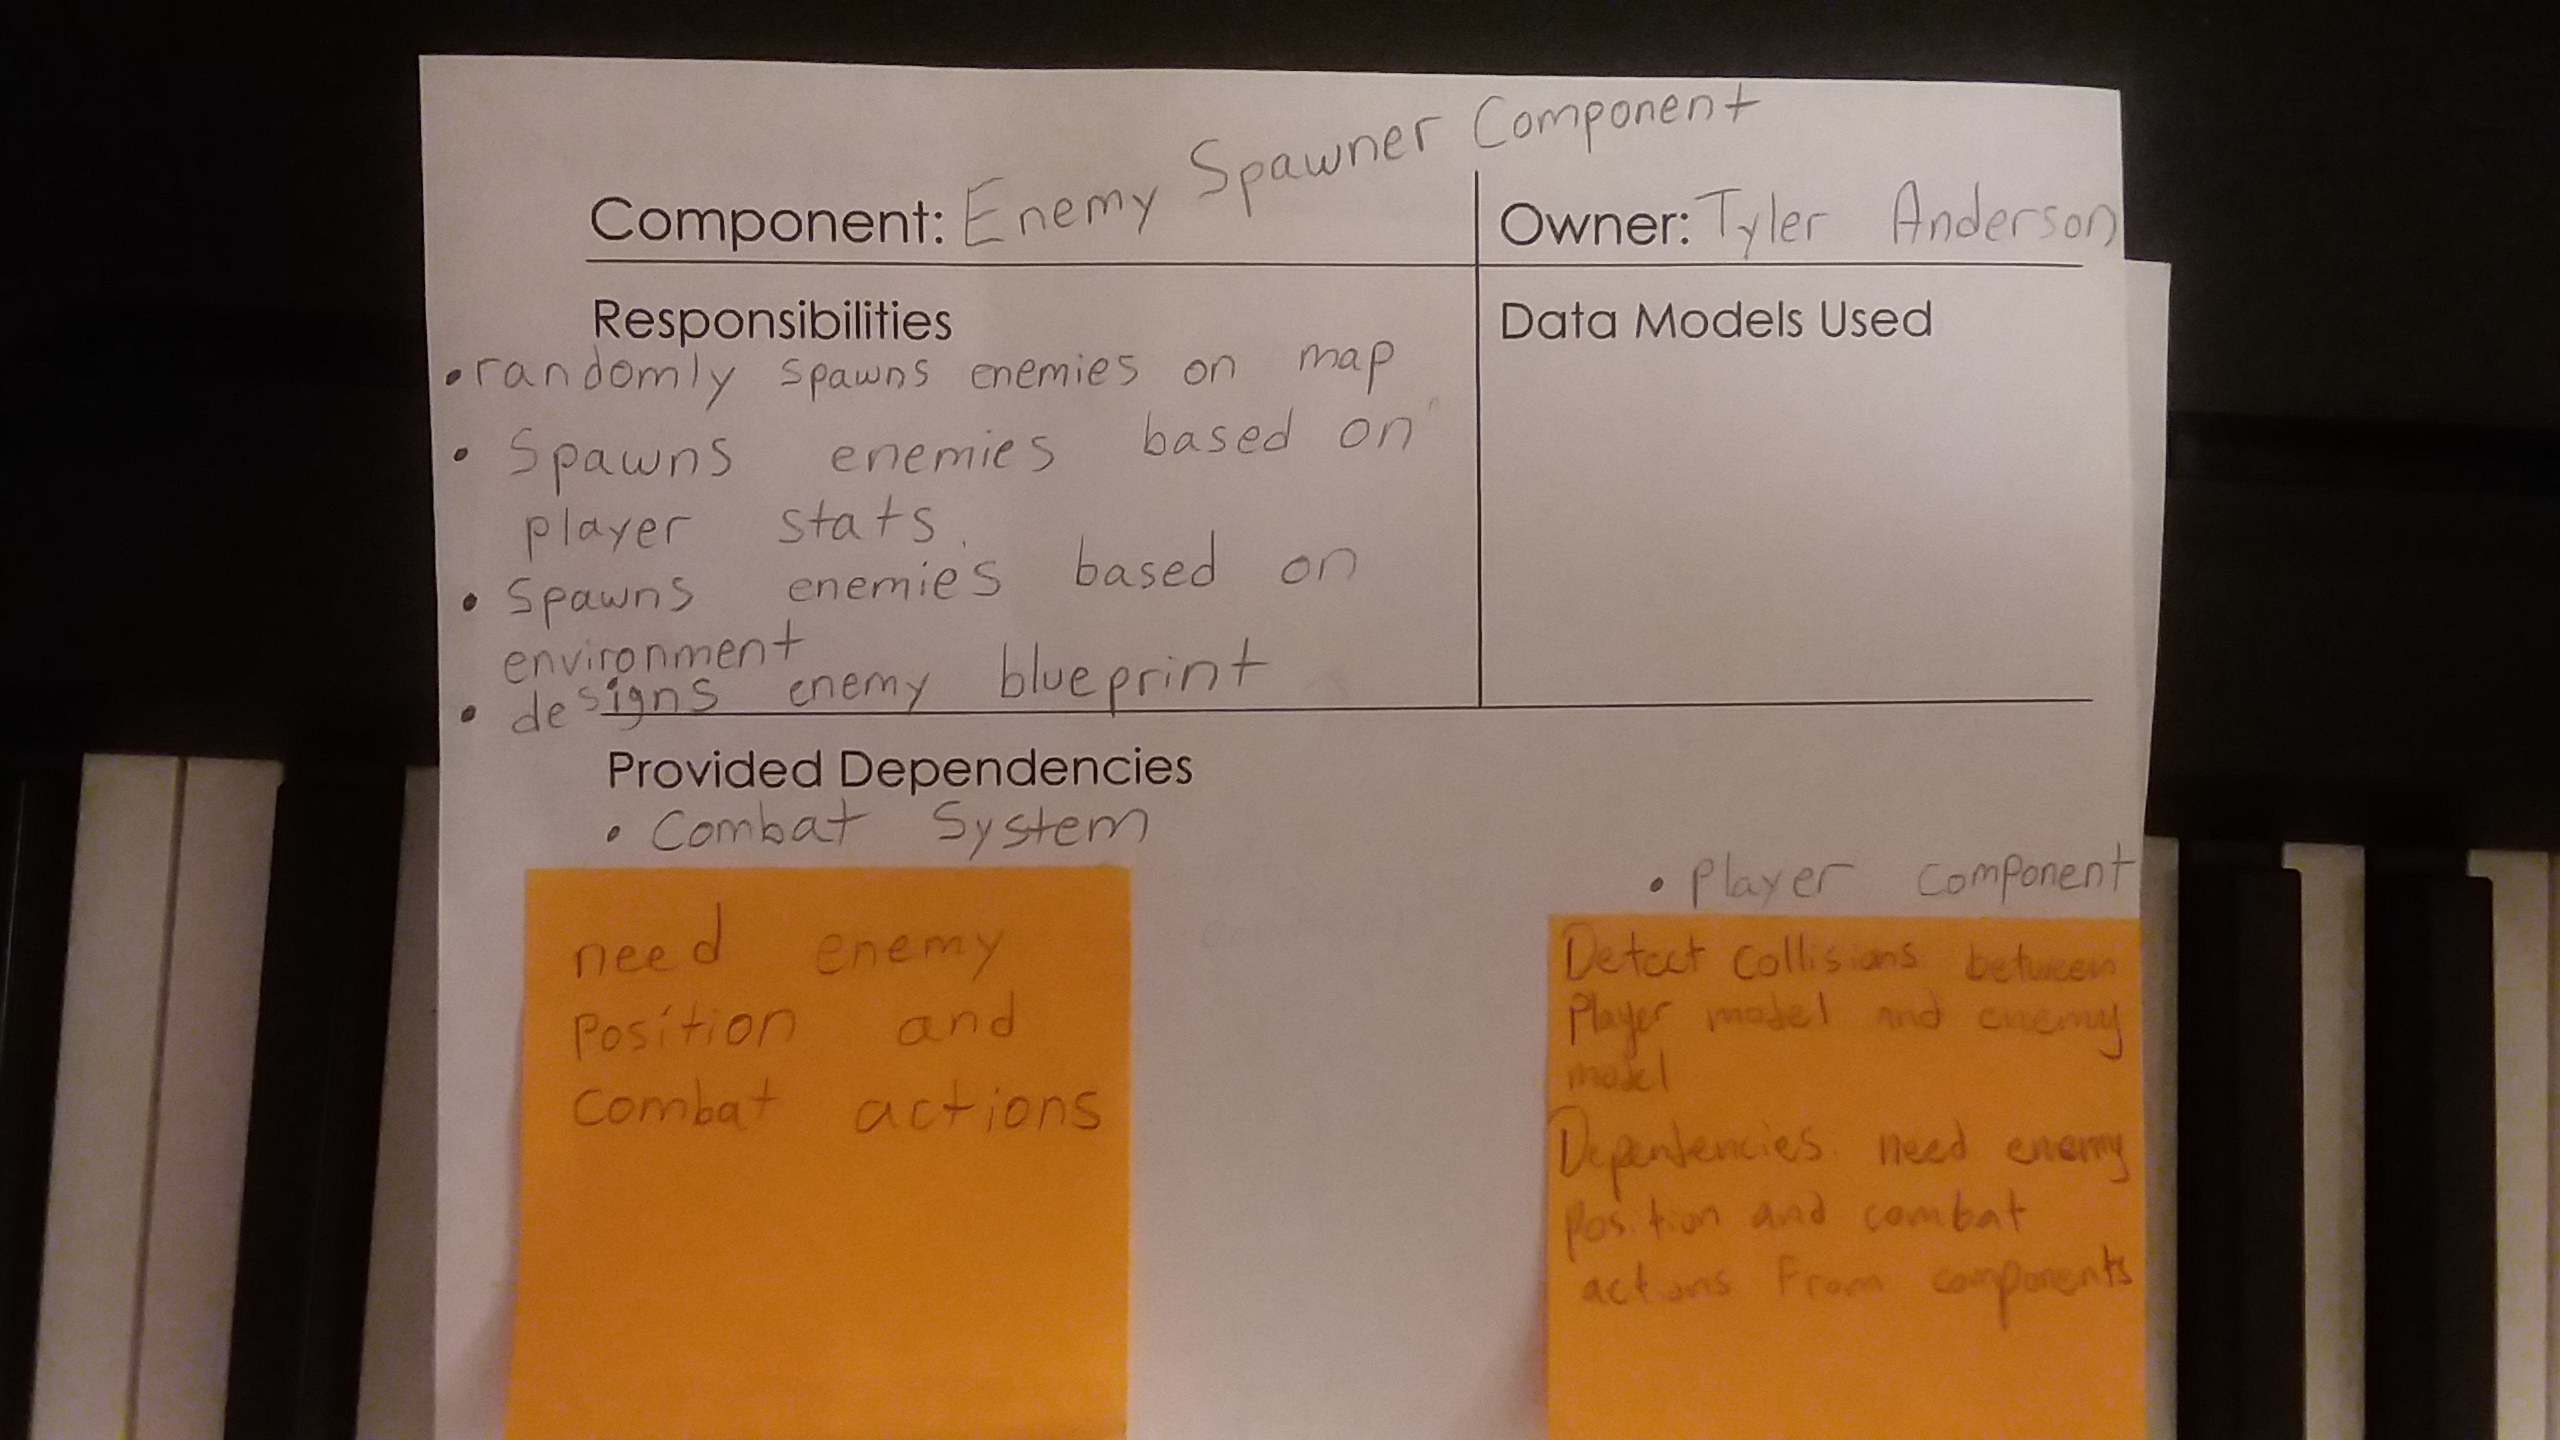 Component: Enemy Spawner Component
Owner: Tyler Anderson
Responsibilities
• randomly spawns enemies on map
• Spawns enemies based on
player stats.
• Spawns enemies based on
environment
• designs enemy blueprint
Data Models Used
Provided Dependencies
• Combat System
need enemy
Position and
Combat actions
• Player component
Detect Collisions between
Player model and enemy
model
Dependencies. need enemy
position and combat
actions From components